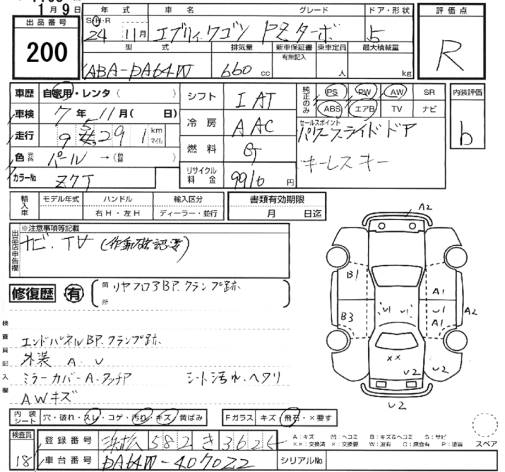 月 9 日
出品番号
200
年式 車名 グレード ドア・形状
24年11月 エブリィワゴン PZターボ 5
型式 排気量 新車保証書 有無記入 乗車定員 最大積載量
ABA-DA64W 660 cc 人 kg
評価点
R
車歴 自家用・レンタ
シフト IAT
純正のみ PS PW AW SR
ABS エアB TV ナビ
内装評価
b
車検 7年 11月(日)
冷房 AAC
セールスポイント
パワースライドドア
キーレスキー
走行 km マイル
燃料
色 パール →(替)
リサイクル料金 9910 円
カラーNo Z7T
輸入車 モデル年式 ハンドル 輸入区分 書類有効期限
右H・左H ディーラー・並行 月 日迄
出品店申告欄 ※注意事項等記載
ナビ、TV(作動確認要)
修復歴 有 箇所 リヤフロアBP、クランプ跡
検査員記入欄
エンドパネルBP、クランプ跡
外装 A、U
ミラーカバーA、タッチア シート汚れ、ヘタリ
AWキズ
A2
B1 A1
B3 U1 U1 A1 A2
B1
×× U2
U2 U2
U2
スペア
内装シート 穴・破れ・スレ・コゲ・汚れ・キズ・黄ばみ
Fガラス キズ・飛石・×要す
A:キズ U:ヘコミ B:キズ&ヘコミ S:サビ
××:交換済 ×:要交換 W:波有 C:腐食有 P:塗装
検査員 18
登録番号 582 き 3624
車台番号 DA64W-407022
シリアルNo